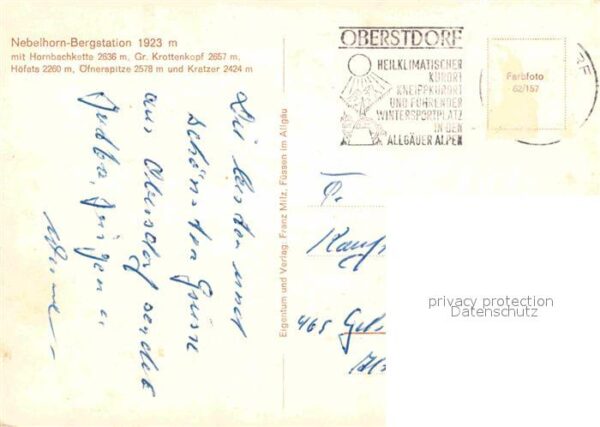 Nebelhorn-Bergstation 1923 m
mit Hornbachkette 2636 m, Gr. Krottenkopf 2657 m,
Höfats 2260 m, Öfnerspitze 2578 m und Kratzer 2424 m
OBERSTDORF
HEILKLIMATISCHER
KURORT
KNEIPPKURORT
UND FÜHRENDER
WINTERSPORTPLATZ
IN DEN
ALLGÄUER ALPEN
Farbfoto
62/157
Die besten und
schönsten Grüsse
aus Oberstdorf sendet
Jürgen u.
Eigentum und Verlag: Franz Milz, Füssen im Allgäu
465 Gels
privacy protection
Datenschutz